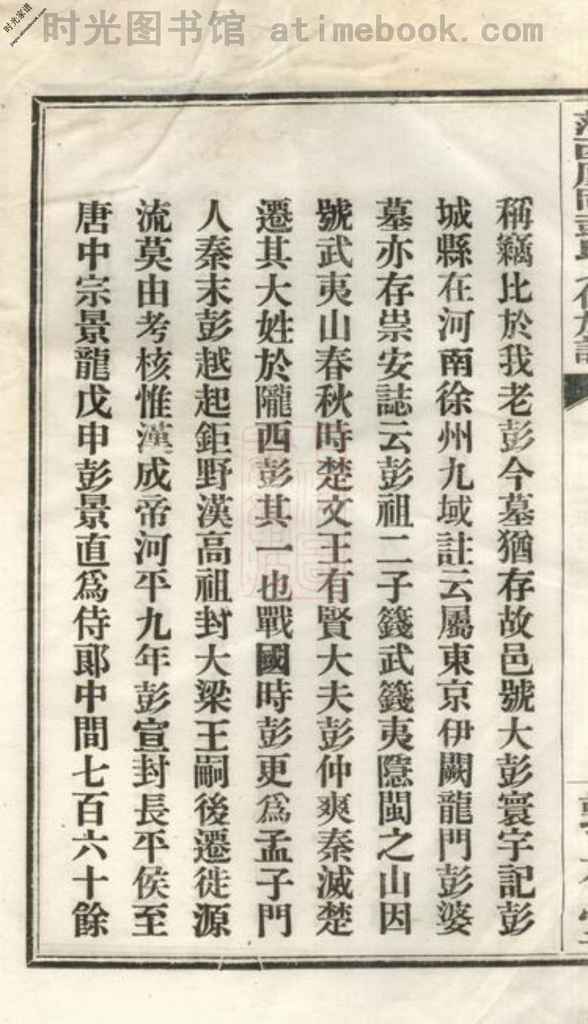 时光图书馆 atimebook.com
时光家谱
稱竊比於我老彭今墓猶存故邑號大彭寰宇記彭
城縣在河南徐州九域註云屬東京伊闕龍門彭婆
墓亦存崇安誌云彭祖二子籛武籛夷隱閩之山因
號武夷山春秋時楚文王有賢大夫彭仲爽秦滅楚
遷其大姓於隴西彭其一也戰國時彭更為孟子門
人秦末彭越起鉅野漢高祖封大梁王嗣後遷徙源
流莫由考核惟漢成帝河平九年彭宣封長平侯至
唐中宗景龍戊申彭景直爲侍郎中間七百六十餘